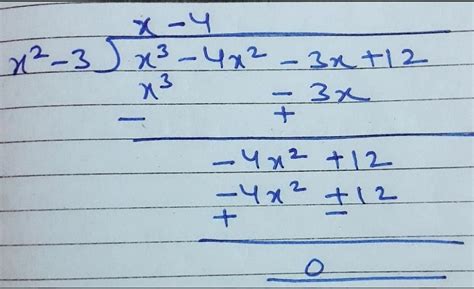 x - 4
x² - 3 ) x³ - 4x² - 3x + 12
x³ - 3x
- +
- 4x² + 12
- 4x² + 12
+ -
0